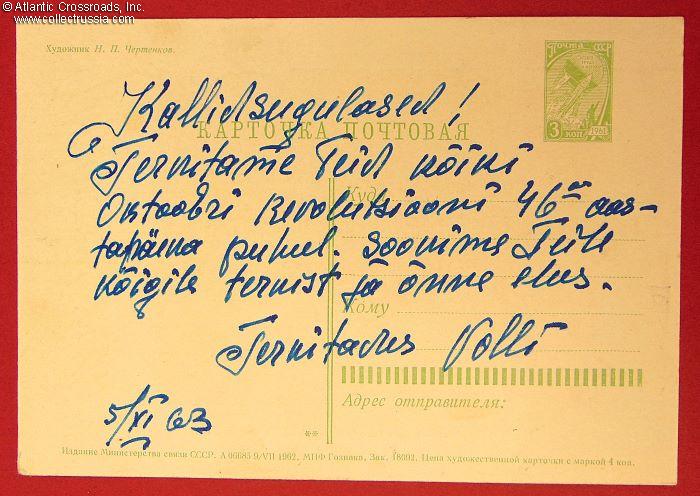 © Atlantic Crossroads, Inc.
www.collectrussia.com
Художник Н. П. Чертенков.
Почта СССР
3 коп 1961
Kallid sugulased!
КАРТОЧКА ПОЧТОВАЯ
Tervitame Teid kõiki
Куда
Oktoobri Revolutsiooni 46nda aas-
tapäeva puhul. Soovime Teile
kõigile tervist ja õnne elus.
Кому
Tervitades Volli
Адрес отправителя:
5/XI 63
**
Издание Министерства связи СССР. А 06685 9/VII 1962. МПФ Гознака. Зак. 18092. Цена художественной карточки с маркой 4 коп.